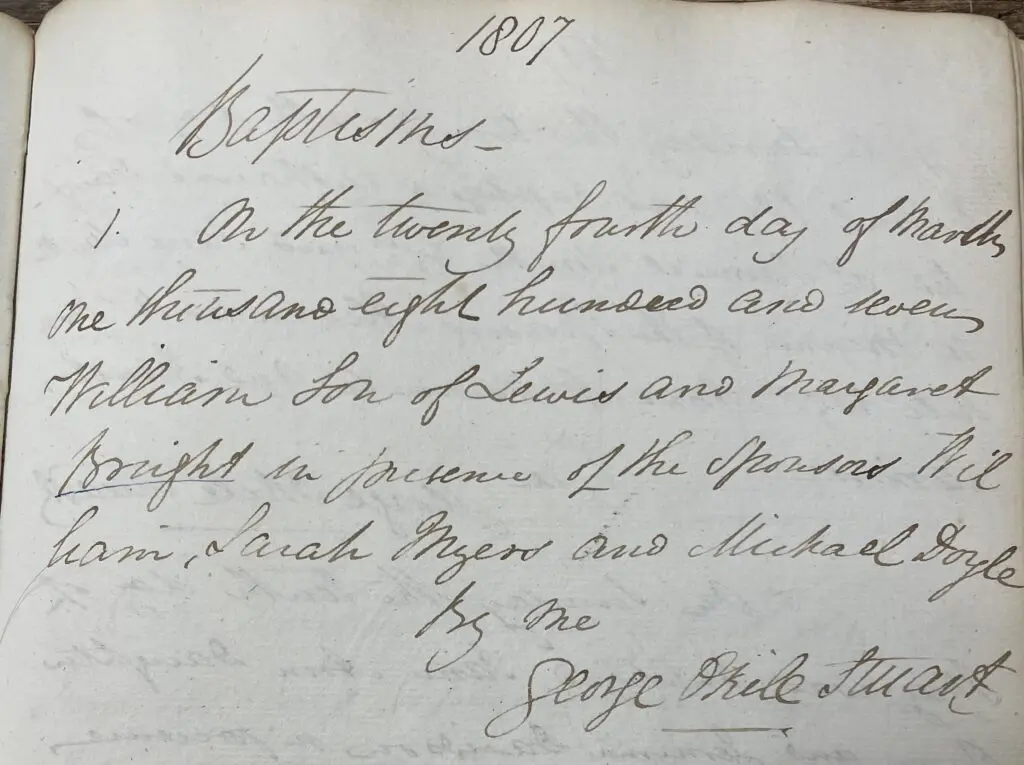 1807
Baptisms -
1. On the twenty fourth day of March
one thousand eight hundred and seven
William Son of Lewis and Margaret
Bright in presence of the Sponsors Wil
liam, Sarah Myers and Michael Doyle
By me
George Okile Stuart